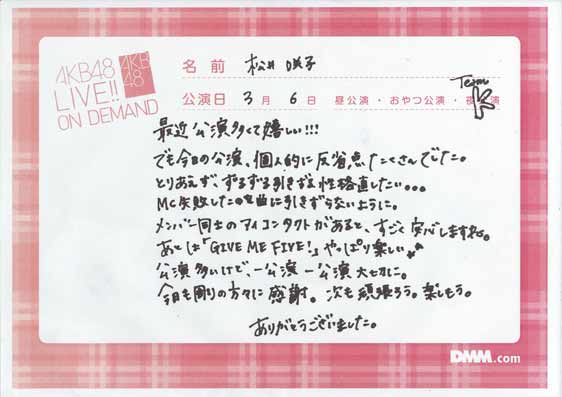 AKB48
LIVE!!
ON DEMAND
AKB
48
名前 松井 咲子
Team
K
公演日 3月 6日 昼公演・おやつ公演・夜公演
最近公演多くて嬉しい!!!
でも今日の公演、個人的に反省点たくさんでした。
とりあえず、ずるずる引きずる性格直したい...
MC失敗したのを曲に引きずらないように。
メンバー同士のアイコンタクトがあると、すごく安心しますね。
あとは「GIVE ME FIVE!」やっぱり楽しい
公演多いけど、一公演一公演大切に。
今日も周りの方々に感謝。次も頑張ろう。楽しもう。
ありがとうございました。
DMM.com